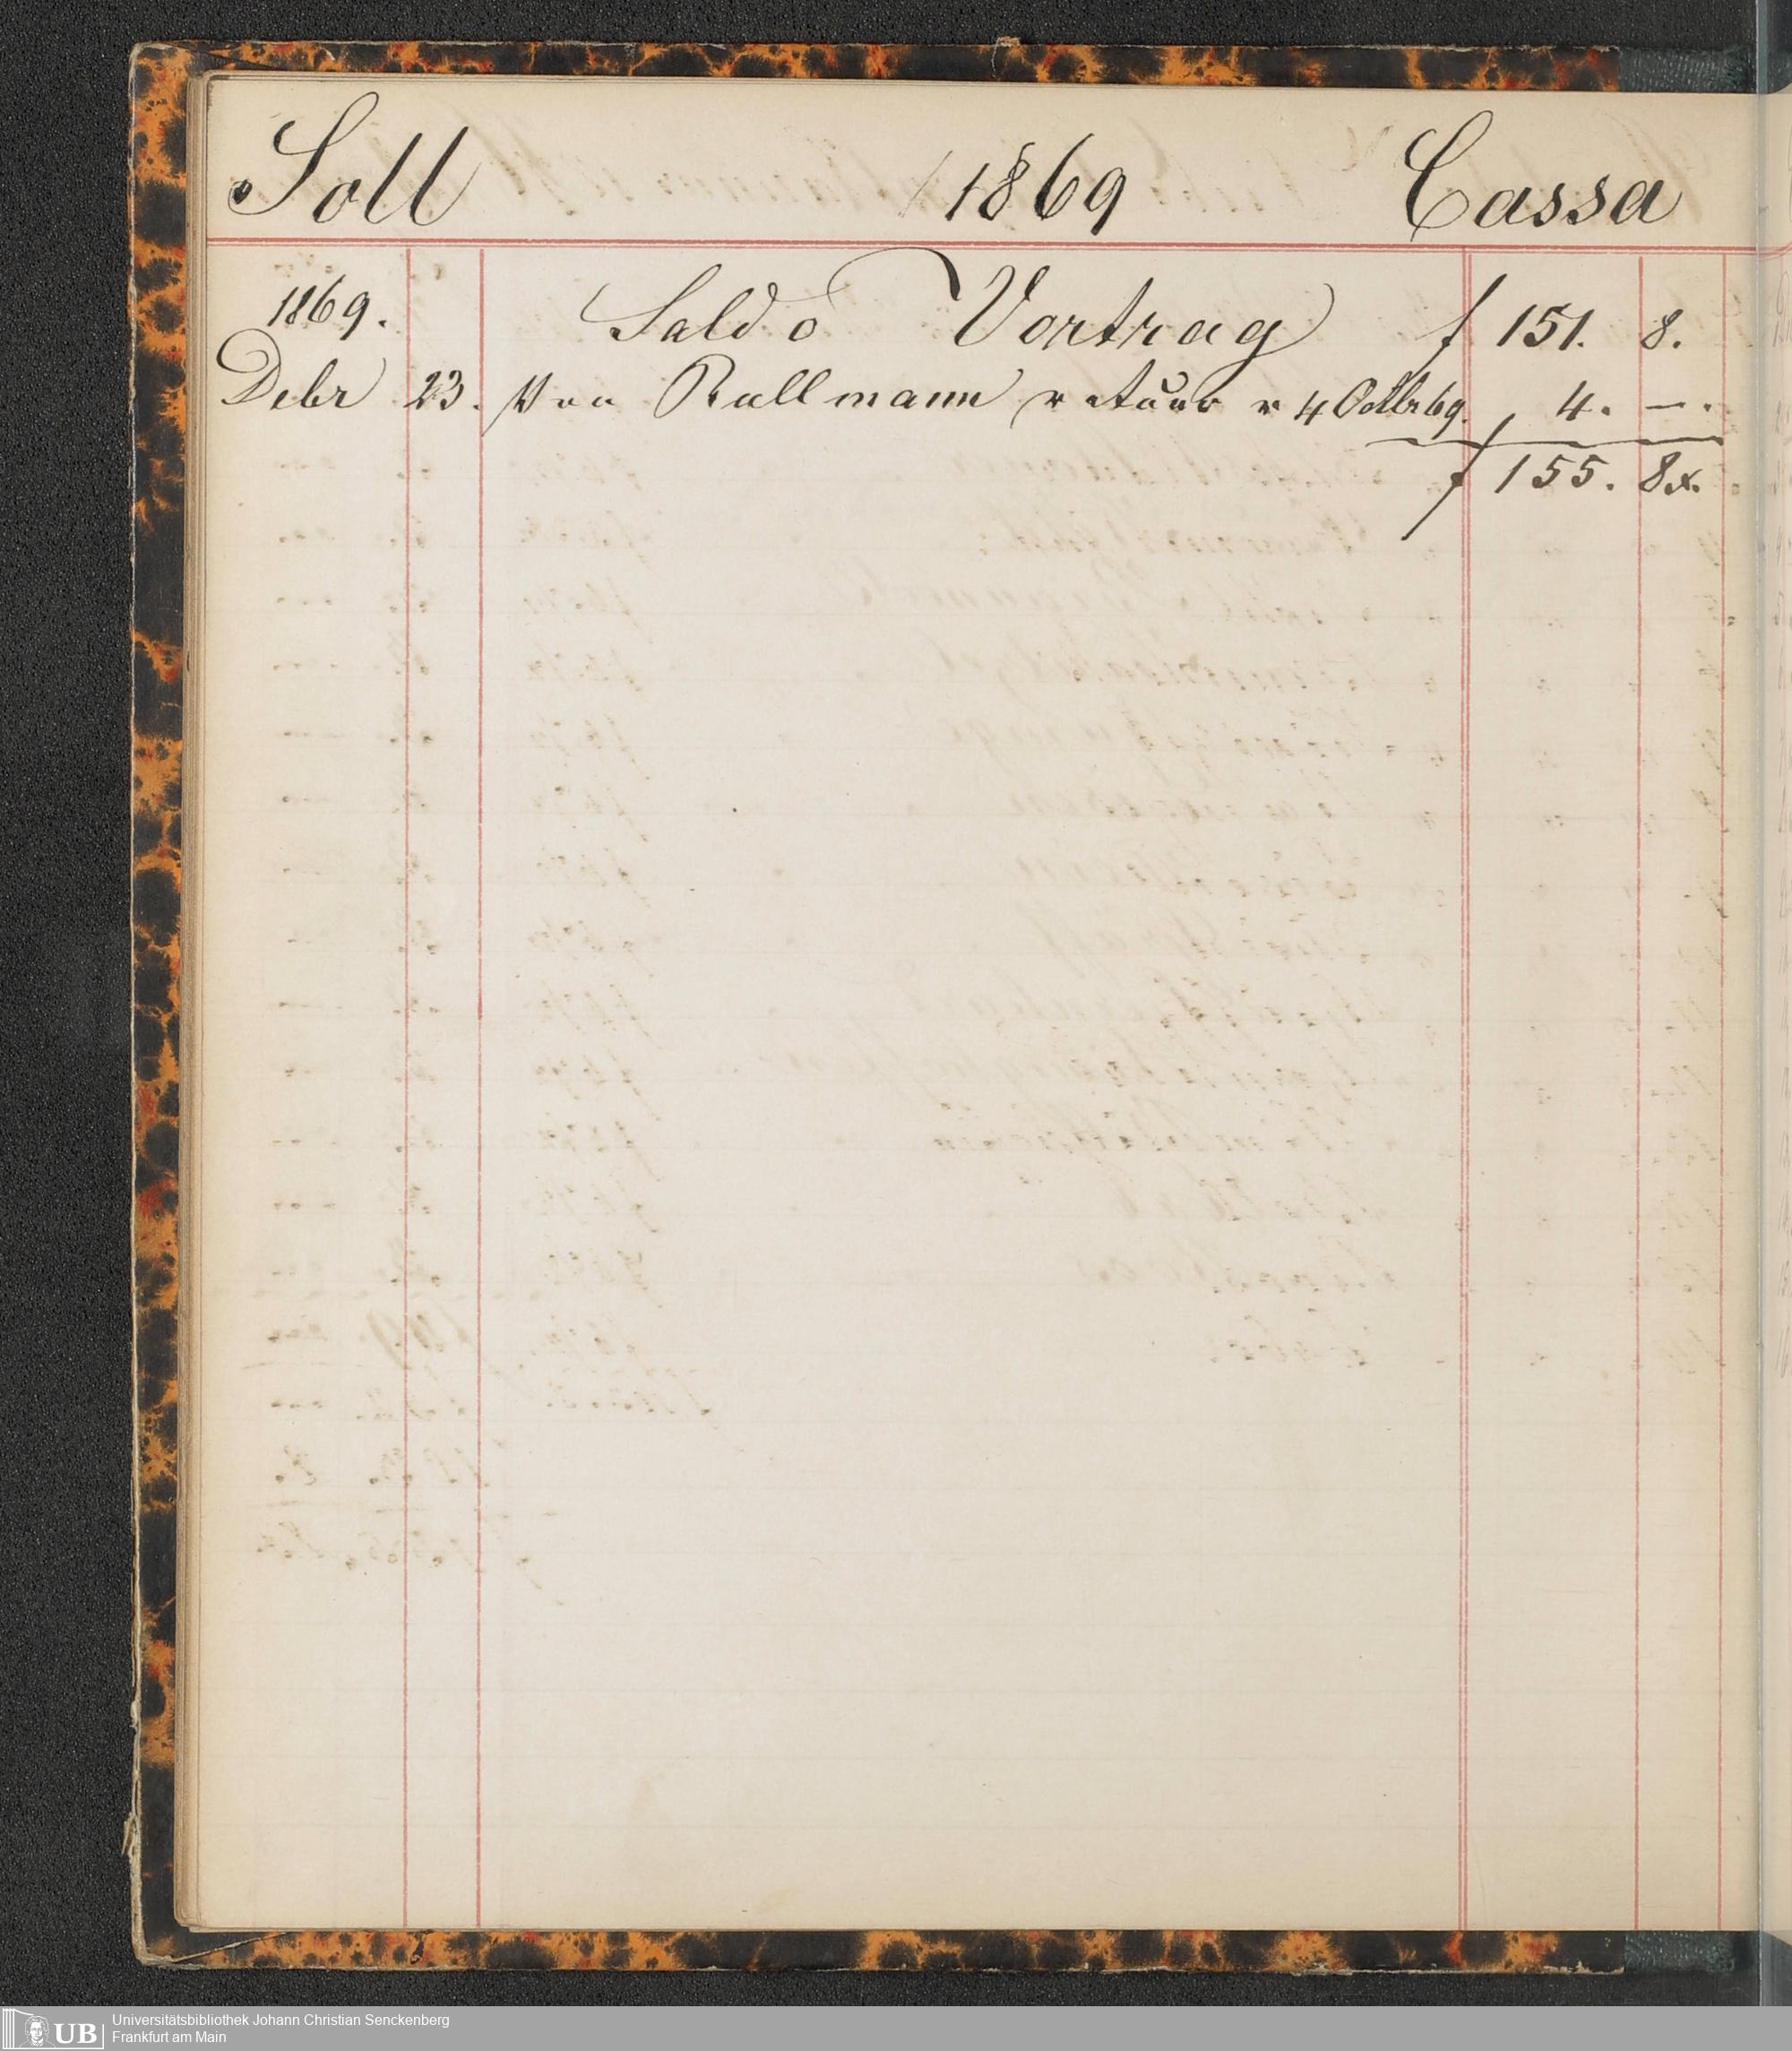 Soll 1869 Cassa
1869. Saldo Vortrag f 151. 8.
Debr 23. Von Rullmann retour v 4 Octbr 69. , 4. —.
f 155. 8 x.
UB
Universitätsbibliothek Johann Christian Senckenberg
Frankfurt am Main